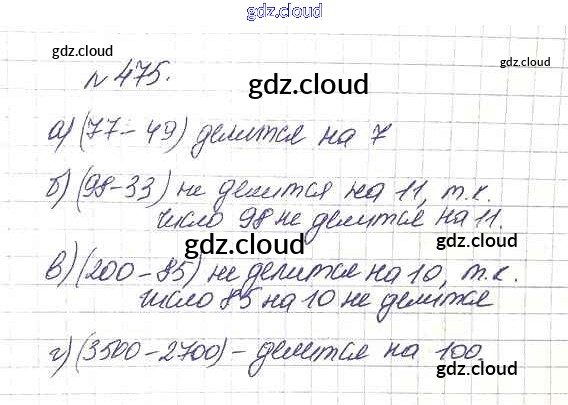 gdz.cloud
gdz.cloud
gdz.cloud
№475.
gdz.cloud
а) (77-49) делится на 7
б) (98-33) не делится на 11, т.к.
число 98 не делится на 11.
gdz.cloud
gdz.cloud
в) (200-85) не делится на 10, т.к.
число 85 на 10 не делится
gdz.cloud
gdz.cloud
г) (3500-2700) - делится на 100.